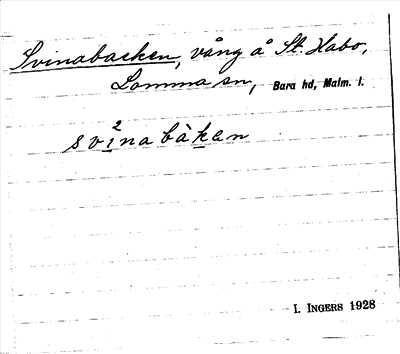 Svinabacken, vång å St. Habo,
Lomma sn, Bara hd, Malm. l.
svi²nabàken
I. INGERS 1928